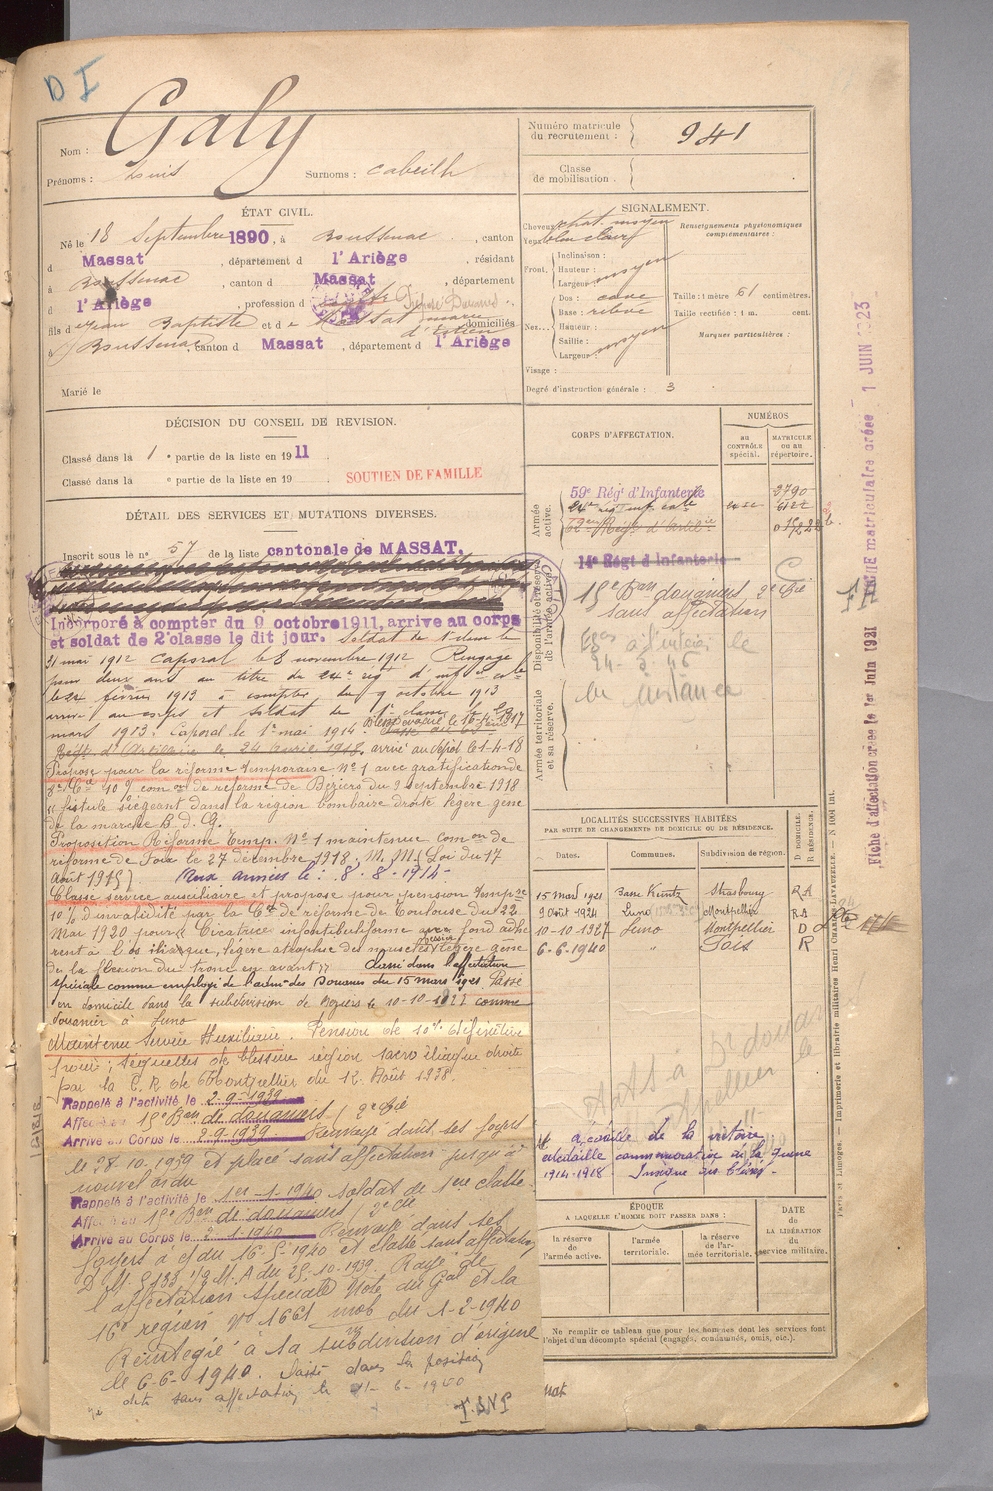 D I
Galy
Nom :
Prénoms : Louis Surnoms : Cabeilh
Numéro matricule
du recrutement : 941
Classe
de mobilisation.
ÉTAT CIVIL.
Né le 18 Septembre 1890, à Boussenac, canton
d Massat, département d l'Ariège, résidant
à Boussenac, canton d Massat, département
d l'Ariège, profession d
fils d Jean Baptiste et d domiciliés
à Boussenac, canton d Massat, département d l'Ariège
Marié le
SIGNALEMENT.
Cheveux chat. moyen
Yeux bleu clair
Front, Inclinaison :
Hauteur : moyen
Largeur :
Nez... Dos : cave
Base : relevé
Hauteur :
Saillie : moyen
Largeur :
Visage :
Renseignements physionomiques
complémentaires :
Taille : 1 mètre 61 centimètres.
Taille rectifiée : 1 m. cent.
Marques particulières :
Degré d'instruction générale : 3
DÉCISION DU CONSEIL DE REVISION.
Classé dans la 1e partie de la liste en 1911
Classé dans la e partie de la liste en 19
SOUTIEN DE FAMILLE
DÉTAIL DES SERVICES ET MUTATIONS DIVERSES.
Inscrit sous le n° 57 de la liste cantonale de MASSAT.
Incorporé à compter du 9 octobre 1911, arrivé au corps
et soldat de 2e classe le dit jour. Soldat de 1e classe le
31 mai 1912 Caporal le 8 novembre 1912 Rengagé
pour deux ans au titre du 24e rég d'inf
le 22 février 1913 à compter du 9 octobre 1913
arrivé au corps et soldat de 1e classe le
mars 1913. Caporal le 1e mai 1914.
Régt d'Artillerie le 24 Avril 1918. arrivé au dépôt le 1-4-18
Proposé pour la réforme temporaire N° 1 avec gratification de
8e Cie 10 % com on de réforme de Béziers du 9 septembre 1918
"fistule siégeant dans la région lombaire droite légère gêne
de la marche B. d. G.
Proposition Réforme Temp. N° 1 maintenue com on de
réforme de Foix le 27 décembre 1918; M. M. (Loi du 17
Août 1915) Aux armées le : 8-8-1914-
Classé service auxiliaire et proposé pour pension temp re
10 % d'invalidité par la Con de réforme de Toulouse du 22
Mai 1920 pour "Cicatrice infundibuliforme avec fond adhé
rent à l'os iliaque, légère atrophie des muscles fessiers légère gêne
de la flexion du tronc en avant" Classé dans l'affectation
spéciale comme employé de l'adm des Douanes du 15 mars 1921 Passé
en domicile dans la subdivision de Béziers le 10-10-1927 comme
douanier à Juno
Maintenu Service Auxiliaire. Pension de 10% définitive
pour : Séquelles de blessure région sacro iliaque droite
par la C. R de Montpellier du 12 Août 1938.
Rappelé à l'activité le 2-9-1939
Affecté au 15e Bon de douaniers / 2e Cie
Arrivé au Corps le 2-9-1939 Renvoyé dans ses foyers
le 28-10-1939 et placé sans affectation jusqu'à
nouvel ordre
Rappelé à l'activité le 1er-1-1940 soldat de 1ere classe
Affecté au 15e Bon de douaniers / 2e Cie
Arrivé au Corps le 2-1-1940 Renvoyé dans ses
foyers à c/ du 16-5-1940 et classé sans affectation
D. M. 5133 1/9 M. A du 28-10-1939. Rayé de
l'affectation spéciale Note du Gal Ct la
16e région N° 1661 mob du 1-2-1940
Réintégré à la subdivision d'origine
le 6-6-1940. Laissé dans la position
dite sans affectation le 11-6-1940
CORPS D'AFFECTATION.
NUMÉROS
AU
CONTRÔLE
spécial.
MATRICULE
ou au
répertoire.
Armée
active.
59e Régt d'Infanterie 2790
24e rég inf cole
Disponibilité et réserve
de l'armée active.
14e Régt d'Infanterie
15e Bon douaniers 2e Cie
sans affectation
Armée territoriale
et sa réserve.
LOCALITÉS SUCCESSIVES HABITÉES
PAR SUITE DE CHANGEMENTS DE DOMICILE OU DE RÉSIDENCE.
Dates. Communes. Subdivision de région. D. DOMICILE. R. RÉSIDENCE.
15 mars 1921 Basse Kuntz Strasbourg RA
9 Août 1924 Juno Montpellier RA
10-10-1927 Juno Montpellier D
6-6-1940 " Foix R
Médaille de la victoire
Médaille commémorative de la guerre
1914-1918 Insigne des blessés -
ÉPOQUE
A LAQUELLE L'HOMME DOIT PASSER DANS :
la réserve
de
l'armée active.
l'armée
territoriale.
la réserve
de l'ar-
mée territoriale.
DATE
de
LA LIBÉRATION
du
service militaire.
Ne remplir ce tableau que pour les hommes dont les services font
l'objet d'un décompte spécial (engagés, condamnés, omis, etc.).
Fiche d'affectation créée le 1er Juin 1921
FICHE matriculaire créée 1 JUIN 1923
Paris et Limoges. — Imprimerie et librairie militaires Henri CHARLES-LAVAUZELLE.